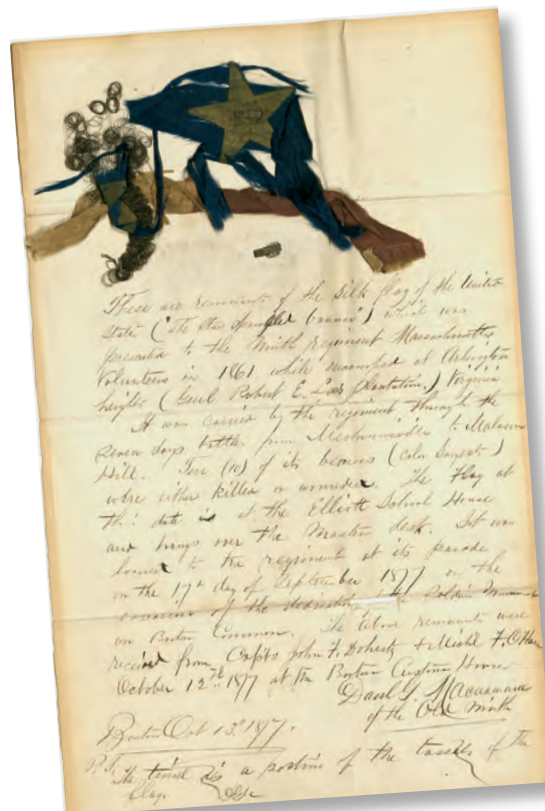 These are remnants of the silk flag of the United
States ("The Star Spangled Banner") which was
presented to the Ninth Regiment Massachusetts
Volunteers in 1861 while encamped at Arlington
heights (Genl Robert E. Lee's plantation,) Virginia
It was carried by the regiment through the
seven days battle from Mechanicsville to Malvern
Hill. Ten (10) of its bearers (Color Sergents)
were either killed or wounded. The flag at
this date is at the Elliott School House
and hangs over the Masters desk. It was
loaned to the regiment at its parade
on the 17th day of September 1877 on the
occasion of the dedication Soldiers Monument
on Boston Common. The above remnants were
received from Capts John F. Doherty & Michl F. O'Hara
October 12th 1877 at the Boston Custom House
Danl G. Macnamara
of the Old Ninth
Boston Oct 13th 1877.
P.S. The tinsel is a portion of the tassels of the
flag.